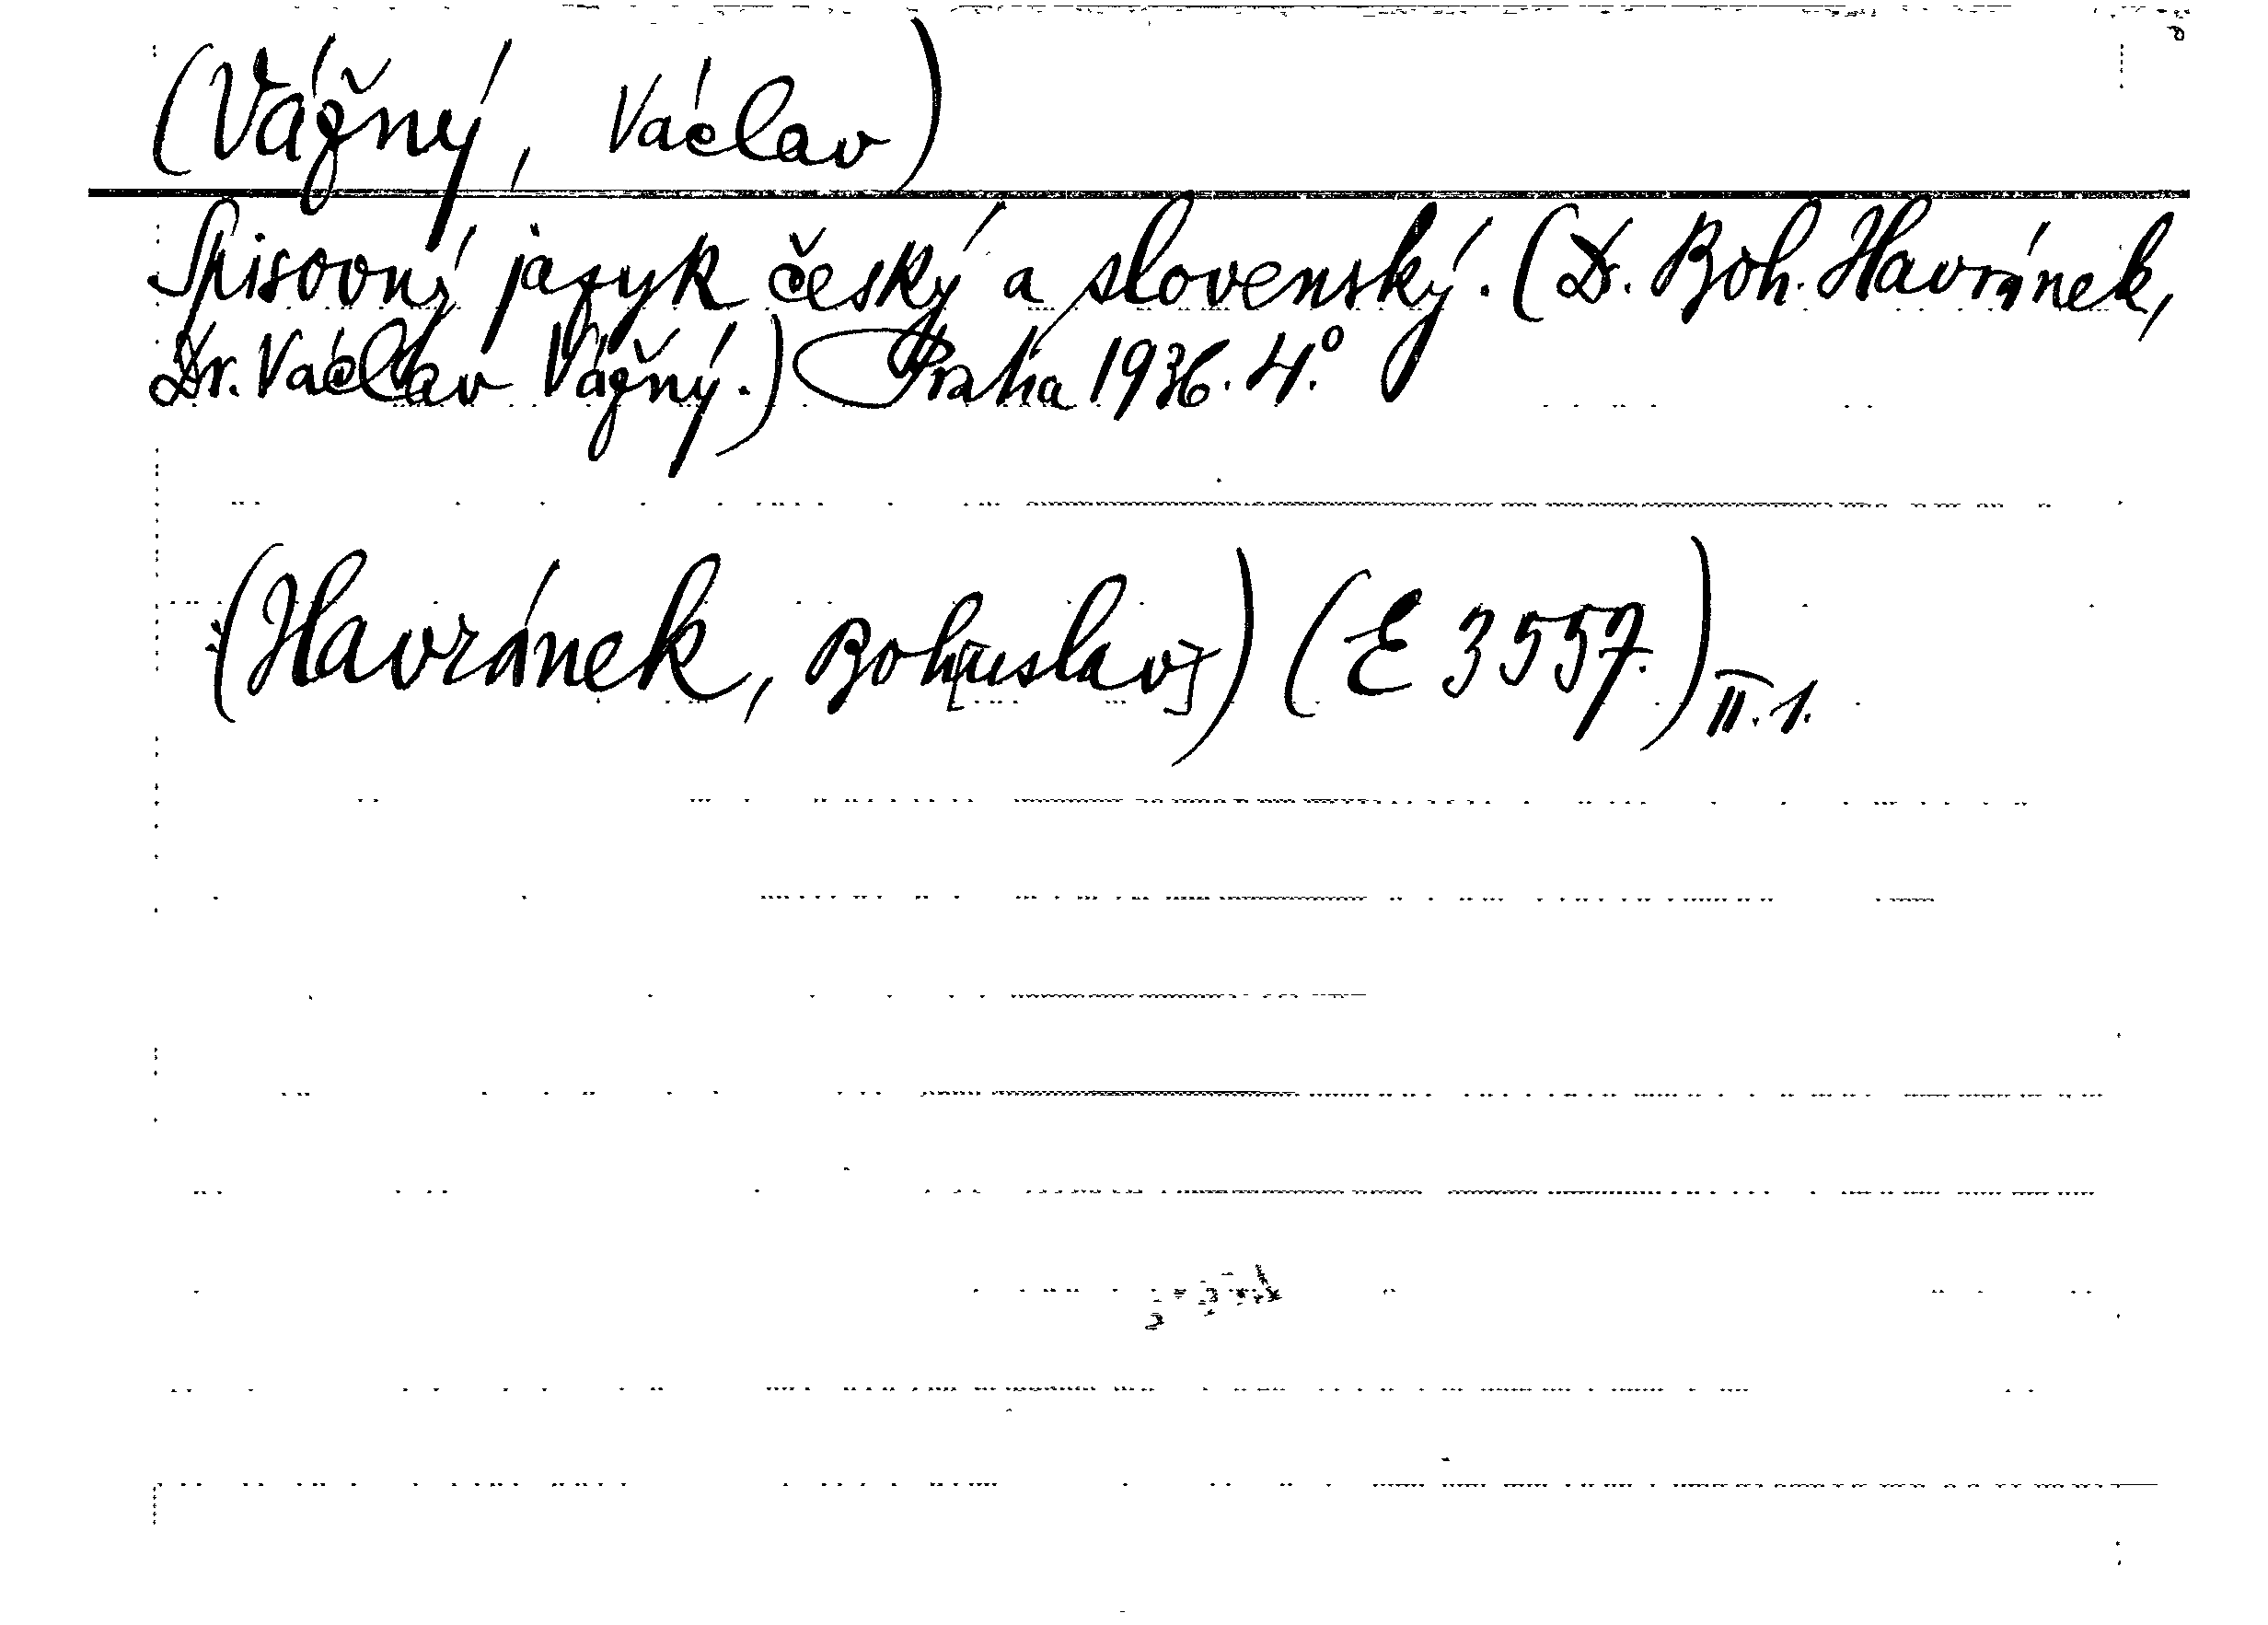 (Vážný, Václav)
Spisovný jazyk český a slovenský. (Dr. Boh. Havránek,
Dr. Václav Vážný.) Praha 1936. 4.°
(Havránek, Boh[uslav]) (E 3557.) II. 1.